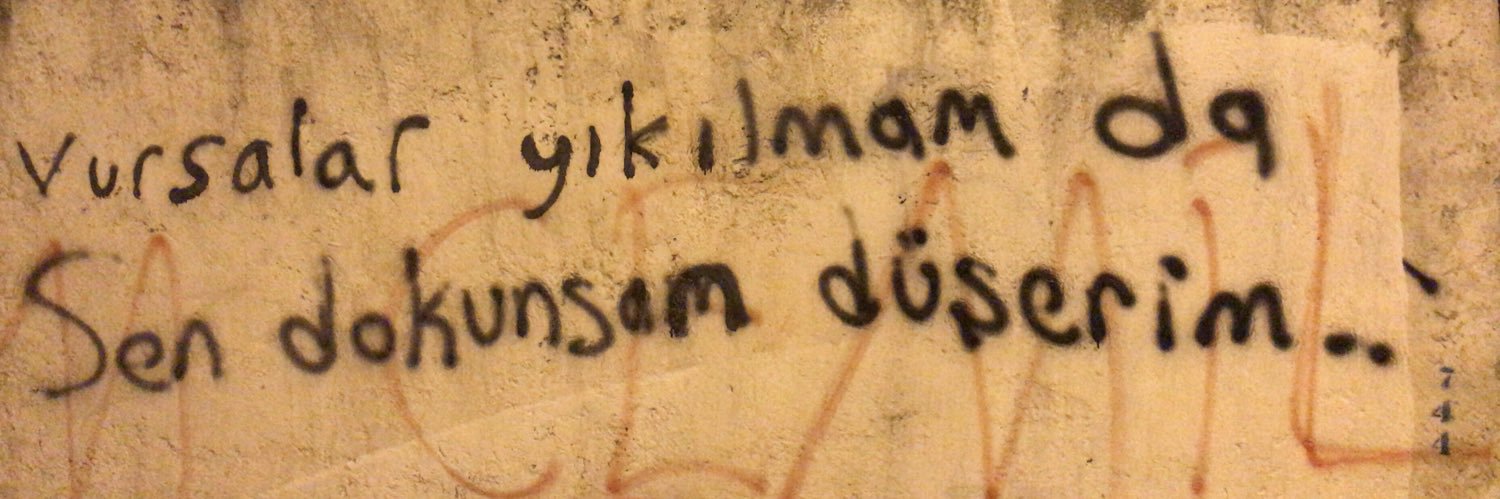 vursalar yıkılmam da
Sen dokunsam düşerim..
744